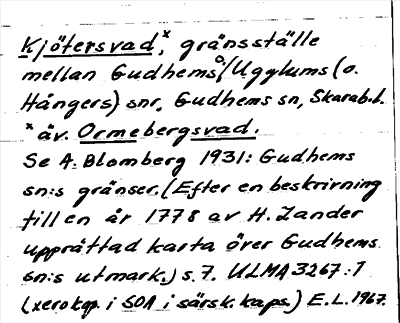 Kjötersvad,ˣ gränsställe
mellan Gudhems o./Ugglums (o.
Hångers) snr, Gudhems sn, Skarab.l.
ˣ äv. Ormebergsvad.
Se A. Blomberg 1931: Gudhems
sn:s gränser. (Efter en beskrivning
till en år 1778 av H. Zander
upprättad karta över Gudhems
sn:s utmark.) s. 7. ULMA 3267:1
(xerokop. i SOA i särsk. kaps.) E.L. 1967.